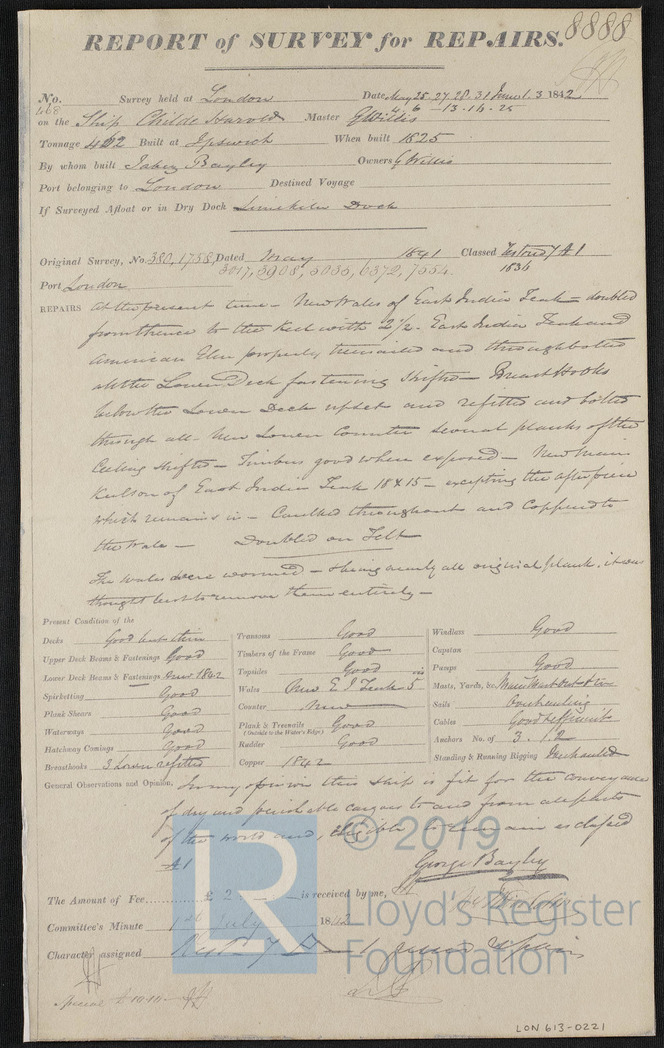 8888
REPORT of SURVEY for REPAIRS.
No. 468 Survey held at London Date May 25. 27. 28. 31 June 1. 3 1842
4. 6 - 13. 14. 25
on the Ship Childe Harold Master G Willis
Tonnage 462 Built at Ipswich When built 1825
By whom built Jabez Bayley Owners G Willis
Port belonging to London Destined Voyage
If Surveyed Afloat or in Dry Dock Limekiln Dock
Original Survey, No. 380, 1758, Dated May 1841 Classed Restored / A1
1836
Port London
REPAIRS At the present time - New Wales of East India Teak - doubled
from thence to the Keel with 2½ East India Teak and
American Elm properly treenailed and through bolted
all the Lower Deck fastening shifted - Breast Hooks
below the Lower Deck upset and refitted and bolted
through all - New Lower Counter several planks of the
Ceiling shifted - Timbers good where exposed - New Main
Keelson of East India Teak 18 x 15 - excepting the after piece
which remains in - Caulked throughout and Coppered to
the Wale - Doubled on Felt
The Wales were wormed - & being nearly all original plank, it was
thought best to remove them entirely -
Present Condition of the
Decks Good but thin
Upper Deck Beams & Fastenings Good
Lower Deck Beams & Fastenings New 1842
Spirketting Good
Plank Shears Good
Waterways Good
Hatchway Comings Good
Breasthooks 3 Lower refitted
Transoms Good
Timbers of the Frame Good
Topsides Good
Wales New E I Teak 5 in
Counter New
Plank & Treenails Good
(Outside to the Water's Edge.)
Rudder Good
Copper 1842
Windlass Good
Capstan
Pumps Good
Masts, Yards, &c.
Sails Overhauling
Cables Good & efficient
Anchors No. of 3. 1. 2
Standing & Running Rigging Overhauled
General Observations and Opinion, In my opinion this ship is fit for the conveyance
of dry and perishable cargoes to and from all parts
of the world and, eligible to remain as classed
A1
George Bayley
The Amount of Fee...... £ 2 - - is received by me,
Committee's Minute 1st July 1842
Character assigned
Special £ 10.10 -
© 2019
LR
Lloyd's Register
Foundation
LON 613-0221